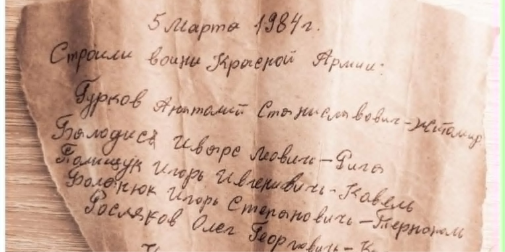 5 Марта 1984 г.
Строили воины Красной Армии:
Гурков Анатолий Станиславович - Житомир
Балодися Ивырс Леович - Рига
Полищук Игорь Ивгенивичь - Кавель
Фоланюк Игорь Степановичь - Тернополь
Росляков Олег Георгович -